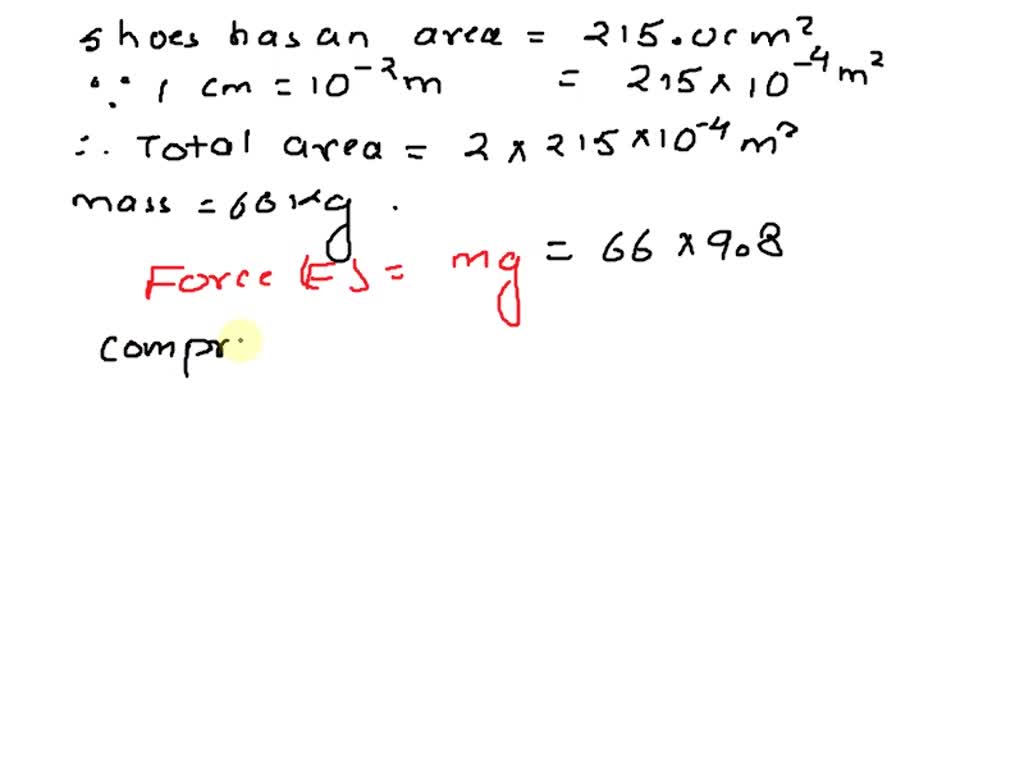 shoes has an area = 215.0cm²
∵ 1 cm = 10⁻²m = 215×10⁻⁴m²
∴ Total area = 2×215×10⁻⁴m²
mass = 66kg.
Force (F) = mg = 66×9.8
compr